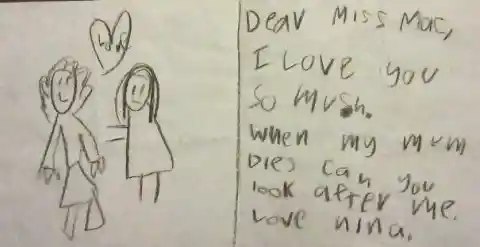 Love
Dear Miss Mac,
I Love you
so mush.
when my mum
Dies can you
look after me.
Love nina.